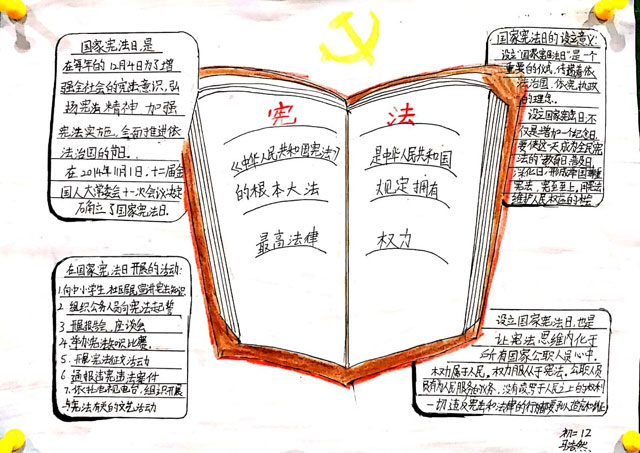 国家宪法日,是
在每年的12月4日为了增
强全社会的宪法意识,弘
扬宪法精神 加强
宪法实施,全面推进依
法治国的节日。
在2014年11月1日,十二届全
国人大常委会十一次会议决定
设立了国家宪法日.
宪 法
《中华人民共和国宪法》
的根本大法
最高法律
是中华人民共和国
规定拥有
权力
国家宪法日的设立意义:
设立"国家宪法日"是一个
重要的仪式,传递着依
法治国,依宪执政
的理念。
设立国家宪法日,不
仅是增加一个纪念日,
要使这一天成为全民宪
法的"教育日、普及日、
深化日,形成举国尊重
宪法,宪法至上,用宪法
维护人民权益的
在国家宪法日开展的活动:
1.向中小学生、社区居民宣讲宪法知识
2 组织公务人员向宪法起誓
3 开展报告会,座谈会
4.举办宪法知识比赛.
5.开展宪法征文活动
6 通报违宪违法案件
7.依托电视电台,组织开展
与宪法有关的文艺活动
设立国家宪法日,也是
让宪法思维内化于
所有国家公职人员心中.
权力属于人民,权力服从于宪法.公职人员
只有为人民服务的义务,没有凌罗于人民之上的权利
一切违反宪法和法律的行为都要予以追究和纠正
初二12